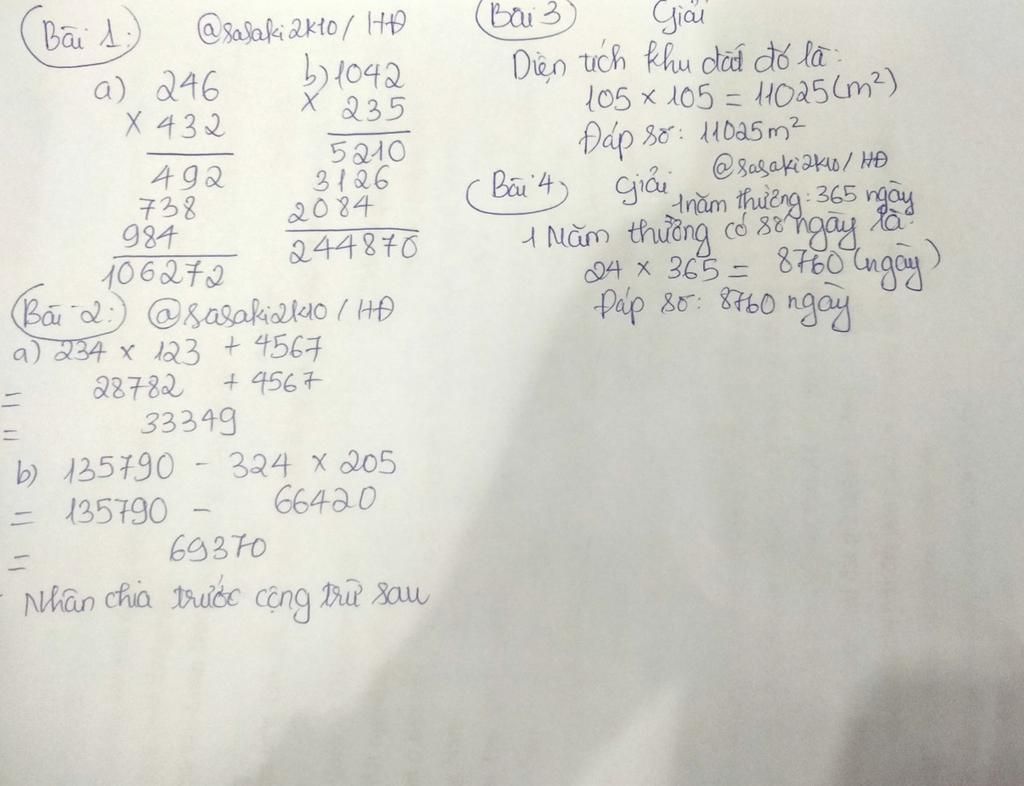 Bài 1: @sasaki2k10 / HĐ
a) 246
× 432
492
738
984
106272
b) 1042
× 235
5210
3126
2084
244870
Bài 2: @sasaki2k10 / HĐ
a) 234 × 123 + 4567
= 28782 + 4567
= 33349
b) 135790 - 324 × 205
= 135790 - 66420
= 69370
Nhân chia trước cộng trừ sau
Bài 3 Giải
Diện tích khu đất đó là:
105 × 105 = 11025 (m²)
Đáp số: 11025m²
@sasaki2k10 / HĐ
Bài 4 Giải
1năm thường: 365 ngày
1 Năm thường có số ngày là:
24 × 365 = 8760 (ngày)
Đáp số: 8760 ngày